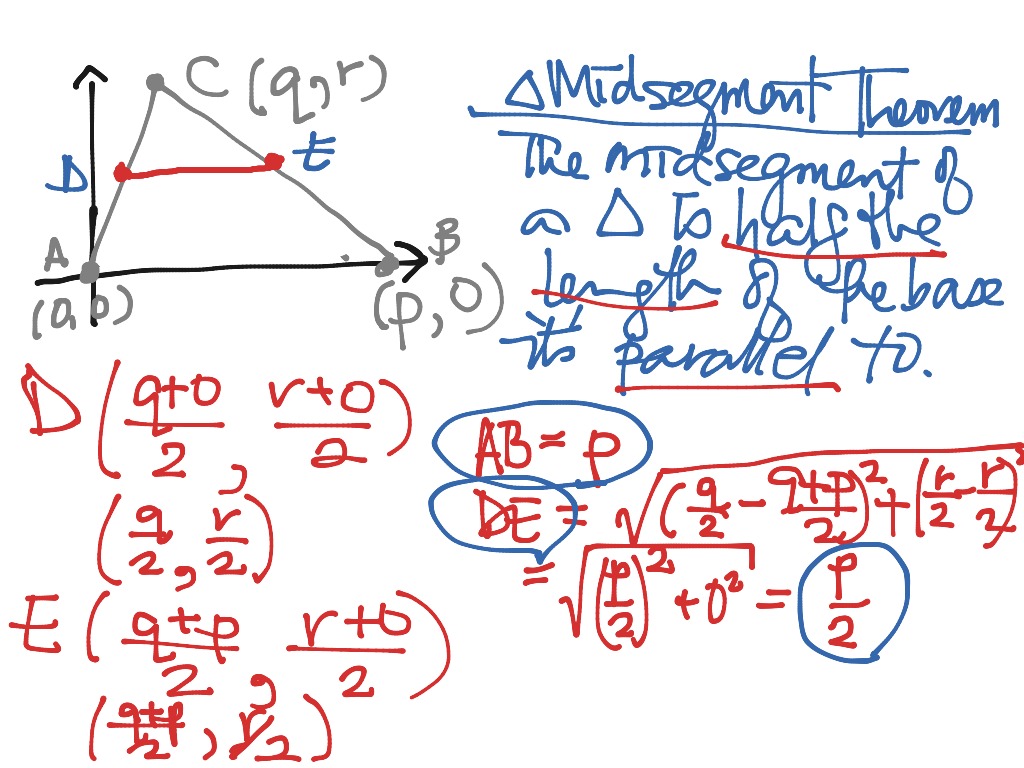 C (q, r)
D
t
A
B
(0, 0)
(p, 0)
△ Midsegment Theorem
The midsegment of
a △ is half the
length of the base
it's parallel to.
D ( q+0/2 , r+0/2 )
( q/2 , r/2 )
E ( q+p/2 , r+0/2 )
( q+p/2 , r/2 )
AB = p
DE = √( (q/2 - q+p/2)² + (r/2 - r/2)²
= √( (p/2)² + 0² = p/2